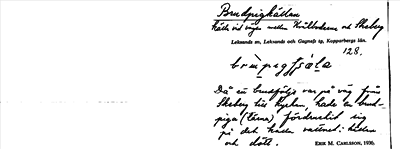 Brudpigkällan
Källa vid vägen mellan Krållbodarna och Skeberg
Leksands sn, Leksands och Gagnefs tg, Kopparbergs län.
128.
Då en brudfölje var på väg från
Skeberg till kyrkan, hade en brud-
piga (tärna) förderfvat sig
på det kalla vattnet i källan
och dött.
ERIK M. CARLSSON, 1930.